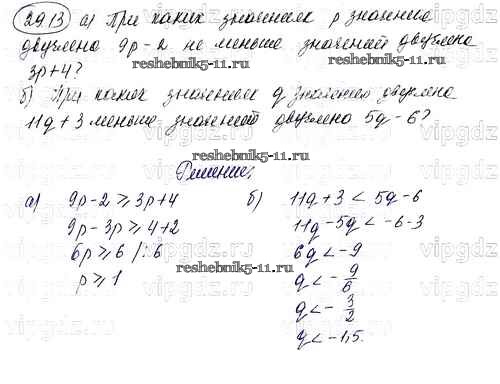 2913 а) При каких значениях p значение
двучлена 9p-2 не меньше значений двучлена
3p+4?
б) При каких значениях q значения двучлена
11q+3 меньше значений двучлена 5q-6?
Решение:
а) 9p-2 ⩾ 3p+4
9p-3p ⩾ 4+2
6p ⩾ 6 /:6
p ⩾ 1
б) 11q+3 < 5q-6
11q-5q < -6-3
6q < -9
q < -9/6
q < -3/2
q < -1,5.
reshebnik5-11.ru
reshebnik5-11.ru
reshebnik5-11.ru
reshebnik5-11.ru
vipgdz.ru